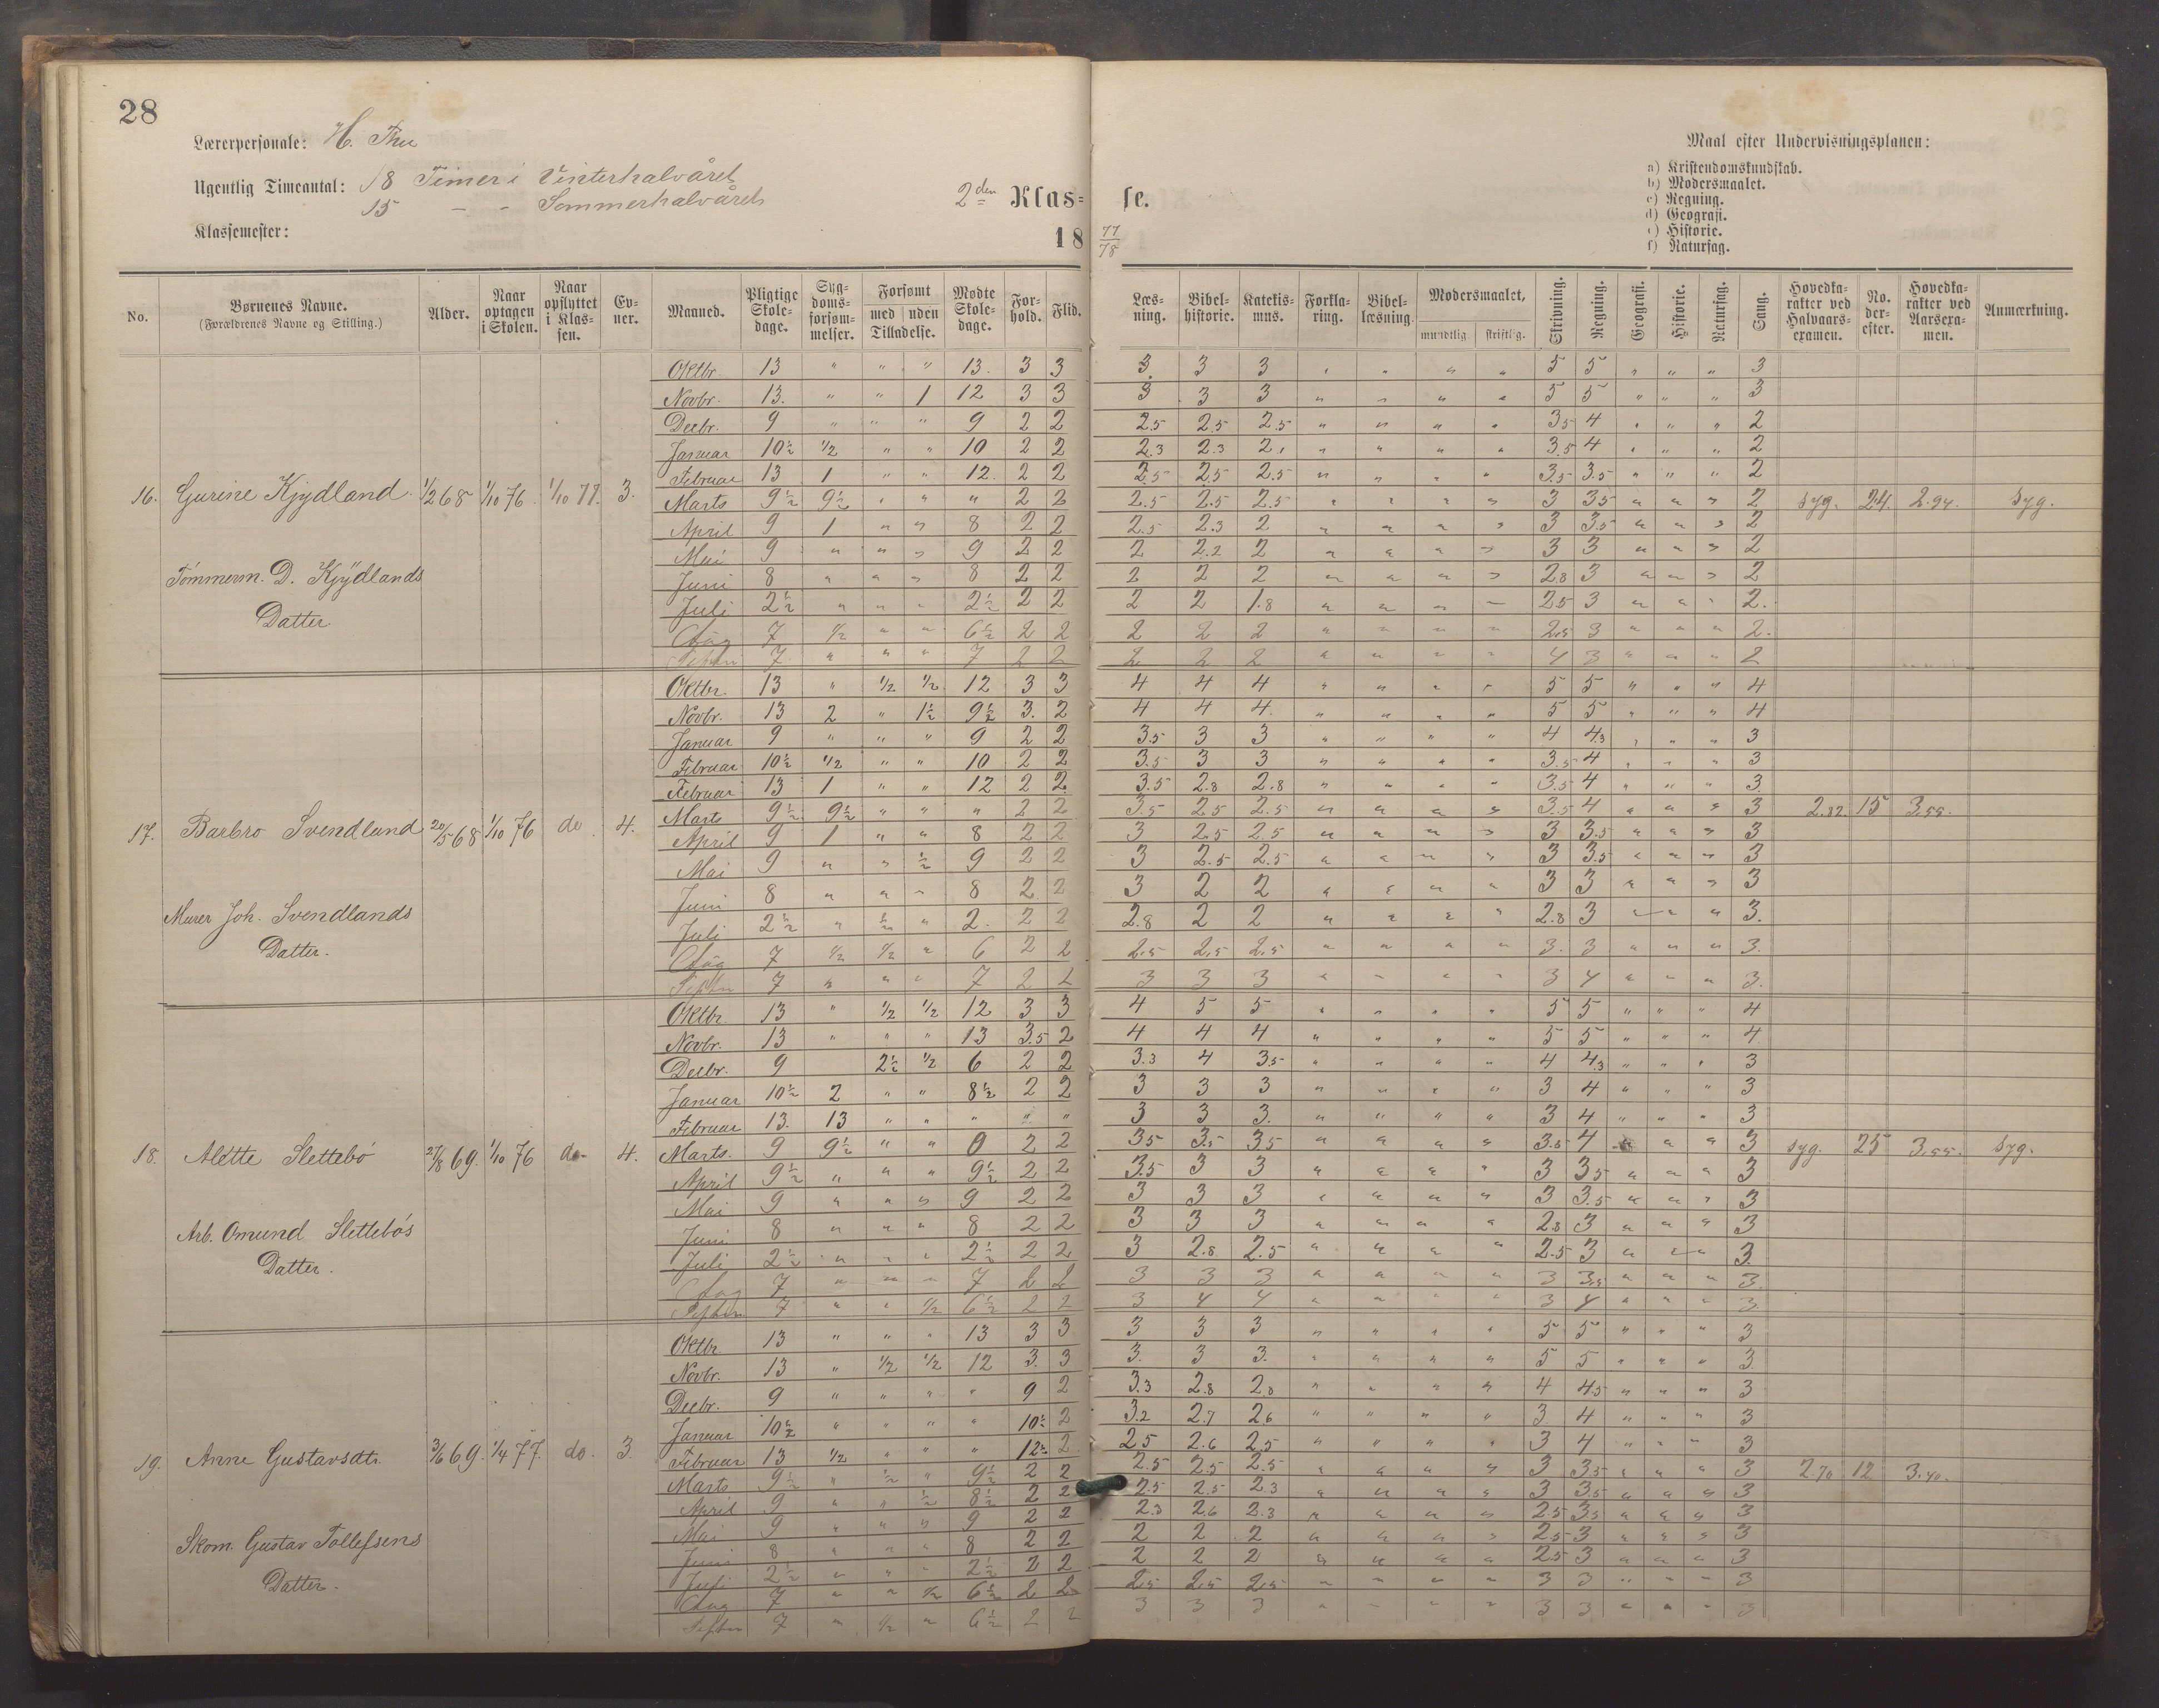 28
Lærerpersonale: H. Thu
Ugentlig Timeantal: 18 Timer i Vinterhalvåret
15 - - Sommerhalvåret
2den Klas= se.
Klassemester:
18 77/78
Maal efter Undervisningsplanen:
a) Kristendomskundskab.
b) Modersmaalet.
c) Regning.
d) Geografi.
e) Historie.
f) Naturfag.
No. | Børnenes Navne. (Forældrenes Navne og Stilling.) | Alder. | Naar optagen i Skolen. | Naar opflyttet i Klassen. | Evner. | Maaned. | Pligtige Skoledage. | Sygdomsforsømmelser. | Forsømt med uden Tilladelse. | Mødte Skoledage. | Forhold. | Flid. | Læsning. | Bibelhistorie. | Katekismus. | Forklaring. | Bibellæsning. | Modersmaalet, mundtlig. skriftlig. | Skrivning. | Regning. | Geografi. | Historie. | Naturfag. | Sang. | Hovedkarakter ved Halvaarsexamen. | No. derefter. | Hovedkarakter ved Aarsexamen. | Anmærkning.
Oktbr. 13 " " " 13. 3 3 3. 3 3 " " " " 5 5 " " " 3
Novbr. 13. " " 1 12 3 3 3 3 3 " " " " 5 5 " " " 3
Decbr. 9 " " " 9 2 2 2.5 2.5 2.5 " " " " 3.5 4 " " " 2
Januar 10½ ½ " " 10 2 2 2.3 2.3 2. " " " " 3.5 4 " " " 2
Februar 13 1 " " 12. 2 2 2.5 2.5 2.5 " " " " 3.5 3.5 " " " 2
16. Gurine Kjydland. 1/2 68 1/10 76. 1/10 77. 3. Marts 9½ 9½ " " " 2 2 2.5 2.5 2.5 " " " " 3 3.5 " " " 2 syg. 24. 2.94. syg.
April 9 1 " " 8 2 2 2.5 2.3 2 " " " " 3 3.5 " " " 2
Mai 9 " " " 9 2 2 2 2.2 2 " " " " 3 3 " " " 2
Tömmerm. D. Kjydlands Juni 8 " " " 8 2 2 2 2 2 " " " " 2.8 3 " " " 2
Datter Juli 2½ " " " 2½ 2 2 2 2 1.8 " " " " 2.5 3 " " " 2.
Aug 7 ½ " " 6½ 2 2 2 2 2 " " " " 2.5 3 " " " 2.
Septbr 7 " " " 7 2 2 2 2 2 " " " " 4 3 " " " 2
Oktbr. 13 " ½ ½ 12 3 3 4 4 4 " " " " 5 5 " " " 4
Novbr. 13 2 " 1½ 9½ 3. 2 4 4 4. " " " " 5 5 " " " 4
Januar 9 " " " 9 2 2 3.5 3 3 " " " " 4 4.3 " " " 3
Februar 10½ ½ " " 10 2 2 3.5 3 3 " " " " 3.5 4 " " " 3
Februar 13 1 " " 12 2 2. 3.5 2.8 2.8 " " " " 3.5 4 " " " 3.
Marts 9½ 9½ " " " 2 2 3.5 2.5 2.5 " " " " 3.5 4 " " " 3 2.82. 15 3.55.
17. Barbro Svendland 20/5 68 1/10 76 do. 4. April 9 1 " " 8 2 2 3 2.5 2.5 " " " " 3 3.5 " " " 3
Mai 9 " " ½ 9 2 2 3 2.5 2.5 " " " " 3 3.5 " " " 3
Murer Joh. Svendlands Juni 8 " " " 8 2 2 3 2 2 " " " " 3 3 " " " 3
Juli 2½ " ½ " 2. 2 2 2.8 2 2 " " " " 2.8 3 " " " 3.
Datter. Aug 7 ½ ½ " 6 2 2 2.5 2.5 2.5 " " " " 3. 3 " " " 3.
Septbr 7 " " " 7 2 2 3 3 3 " " " " 3 4 " " " 3.
Oktbr. 13 " ½ ½ 12 3 3 4 5 5 " " " " 5 5 " " " 4
Novbr. 13 " " " 13 3.5 2 4 4 4 " " " " 5 5 " " " 4
Decbr. 9 2½ ½ 6 2 2 3.3 4 3.5 " " " " 4 4.3 " " " 3
Januar 10½ 2 " " 8½ 2 2 3 3 3 " " " " 3 4 " " " 3
Februar 13. 13 " " " " " 3 3 3. " " " " 3 4 " " " 3
18. Alette Slettebø 27/8 69. 1/10 76 do- 4. Marts. 9 9½ " " 0 2 2 3.5 3.5 3.5 " " " " 3.5 4 " " " 3 syg. 25 3.55. syg.
April 9½ " " " 9½ 2 2 3.5 3 3 " " " " 3 3.5 " " " 3
Mai 9 " " " 9 2 2 3 3 3 " " " " 3 3.5 " " " 3
Arb. Omund Slettebøs Juni 8 " " " 8 2 2 3 3 3 " " " " 2.8 3 " " " 3
Datter. Juli 2½ " " " 2½ 2 2 3 2.8 2.5 " " " " 2.5 3 " " " 3.
Aug 7 " " " 7 2 2 3 3 3 " " " " 3 3.5 " " " 3.
Septbr 7 " " ½ 6½ 2 2 3 4 4 " " " " 3 4 " " " 3.
Oktbr 13 " " " 13 3 3 3 3 3 " " " " 5 5 " " " 3
Novbr. 13 " ½ ½ 12 3. 3 3. 3 3. " " " " 5 5 " " " 3.
Decbr. 9 " " " " 9 2 3.3 2.8 2.8 " " " " 4 4.5 " " " 3
Januar 10½ " " " " 10½ 2 3.2 2.7 2.6 " " " " 3. 4 " " " 3
19. Anne Gustavsdtr. 3/6 69. 1/4 77. do. 3. Februar 13 ½ " " " 12½ 2 2.5 2.6 2.5 " " " " 3 4 " " " 3
Marts 9½ " ½ " 9½ 2 2 2.5 2.5 2.5 " " " " 3 3.5 " " " 3 2.70 12 3.40.
April 9 " " ½ 8½ 2 2 2.5 2.5 2.3 " " " " 3 3.5 " " " 3
Mai 9 " " " 9 2 2 2.3 2.6 2.3 " " " " 2.5 3.5 " " " 3
Skom. Gustav Tollefsens Juni 8 " " " 8 2 2 2 2 2 " " " " 2.5 3 " " " 3
Juli 2½ " " " 2½ 2 2 2 2 2 " " " " 2.5 3 " " " 3
Datter. Aug 7 " " ½ 6½ 2 2 2.5 2.5 2.5 " " " " 3 3 " " " 3
Septbr 7 " ½ " 6½ 2 2 3 3 3 " " " " 3 3 " " " 3